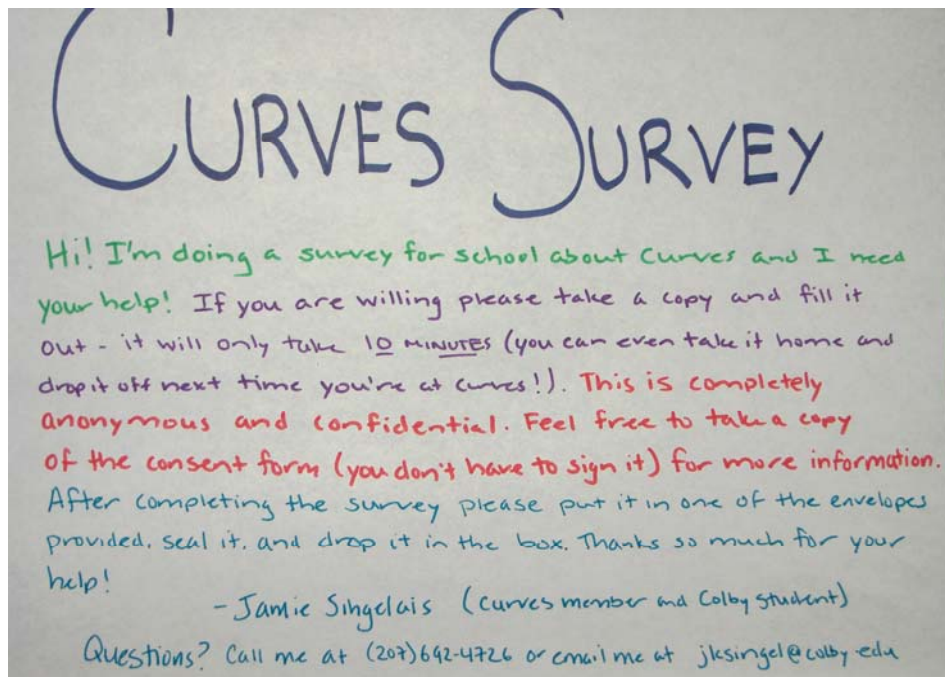 CURVES SURVEY
Hi! I'm doing a survey for school about Curves and I need
your help! If you are willing please take a copy and fill it
out - it will only take 10 MINUTES (you can even take it home and
drop it off next time you're at curves!). This is completely
anonymous and confidential. Feel free to take a copy
of the consent form (you don't have to sign it) for more information.
After completing the survey please put it in one of the envelopes
provided, seal it, and drop it in the box. Thanks so much for your
help!
- Jamie Singelais (Curves member and Colby student)
Questions? Call me at (207)692-4726 or email me at jksingel@colby.edu